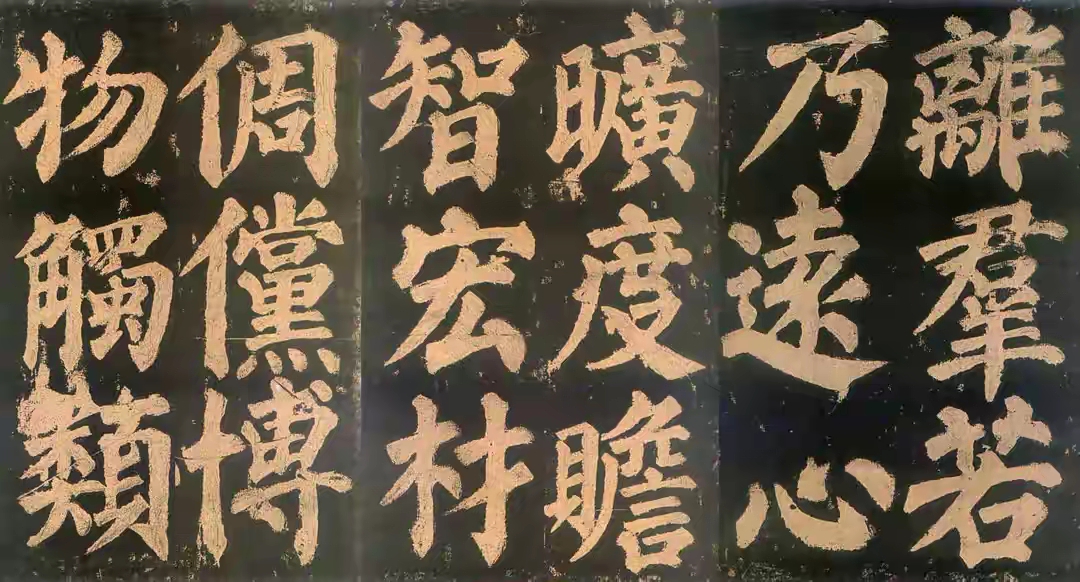 離羣若
乃遠心
曠度瞻
智宏材
倜儻博
物觸類